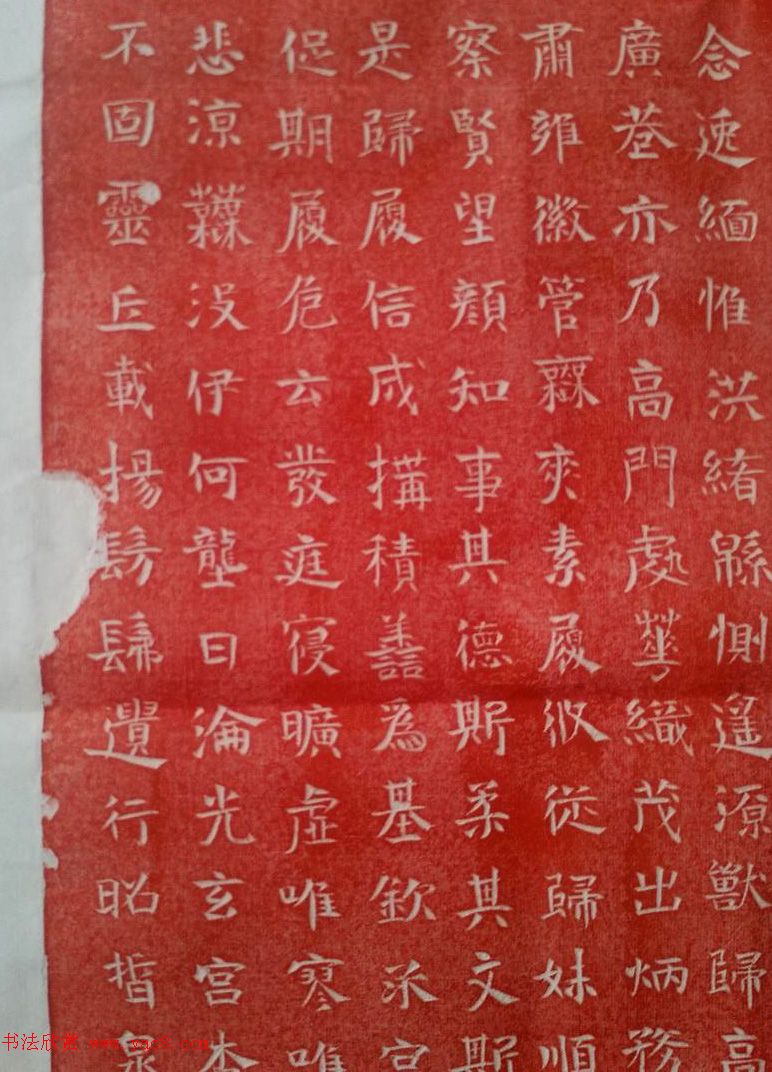 念緬惟洪緒緜惻遥源獸歸高
廣巷亦乃高門處華織茂出炳務
肅雍徽管龢爽素履攸從歸妹順
察賢望顔知事其德斯柔其文斯
是歸履信成構積善爲基欽尒宜
促期履危云發庭寑曠虛唯寒唯
悲涼沒伊何壟日淪光玄宮本
不固靈丘載揚髣髴遺行昭晢泉
书法欣赏 www.yac8.com